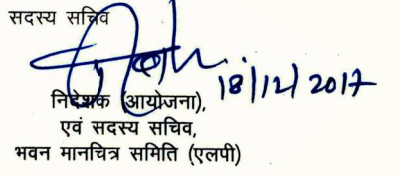 सदस्य सचिव
18/12/2017
निदेशक (आयोजना),
एवं सदस्य सचिव,
भवन मानचित्र समिति (एलपी)